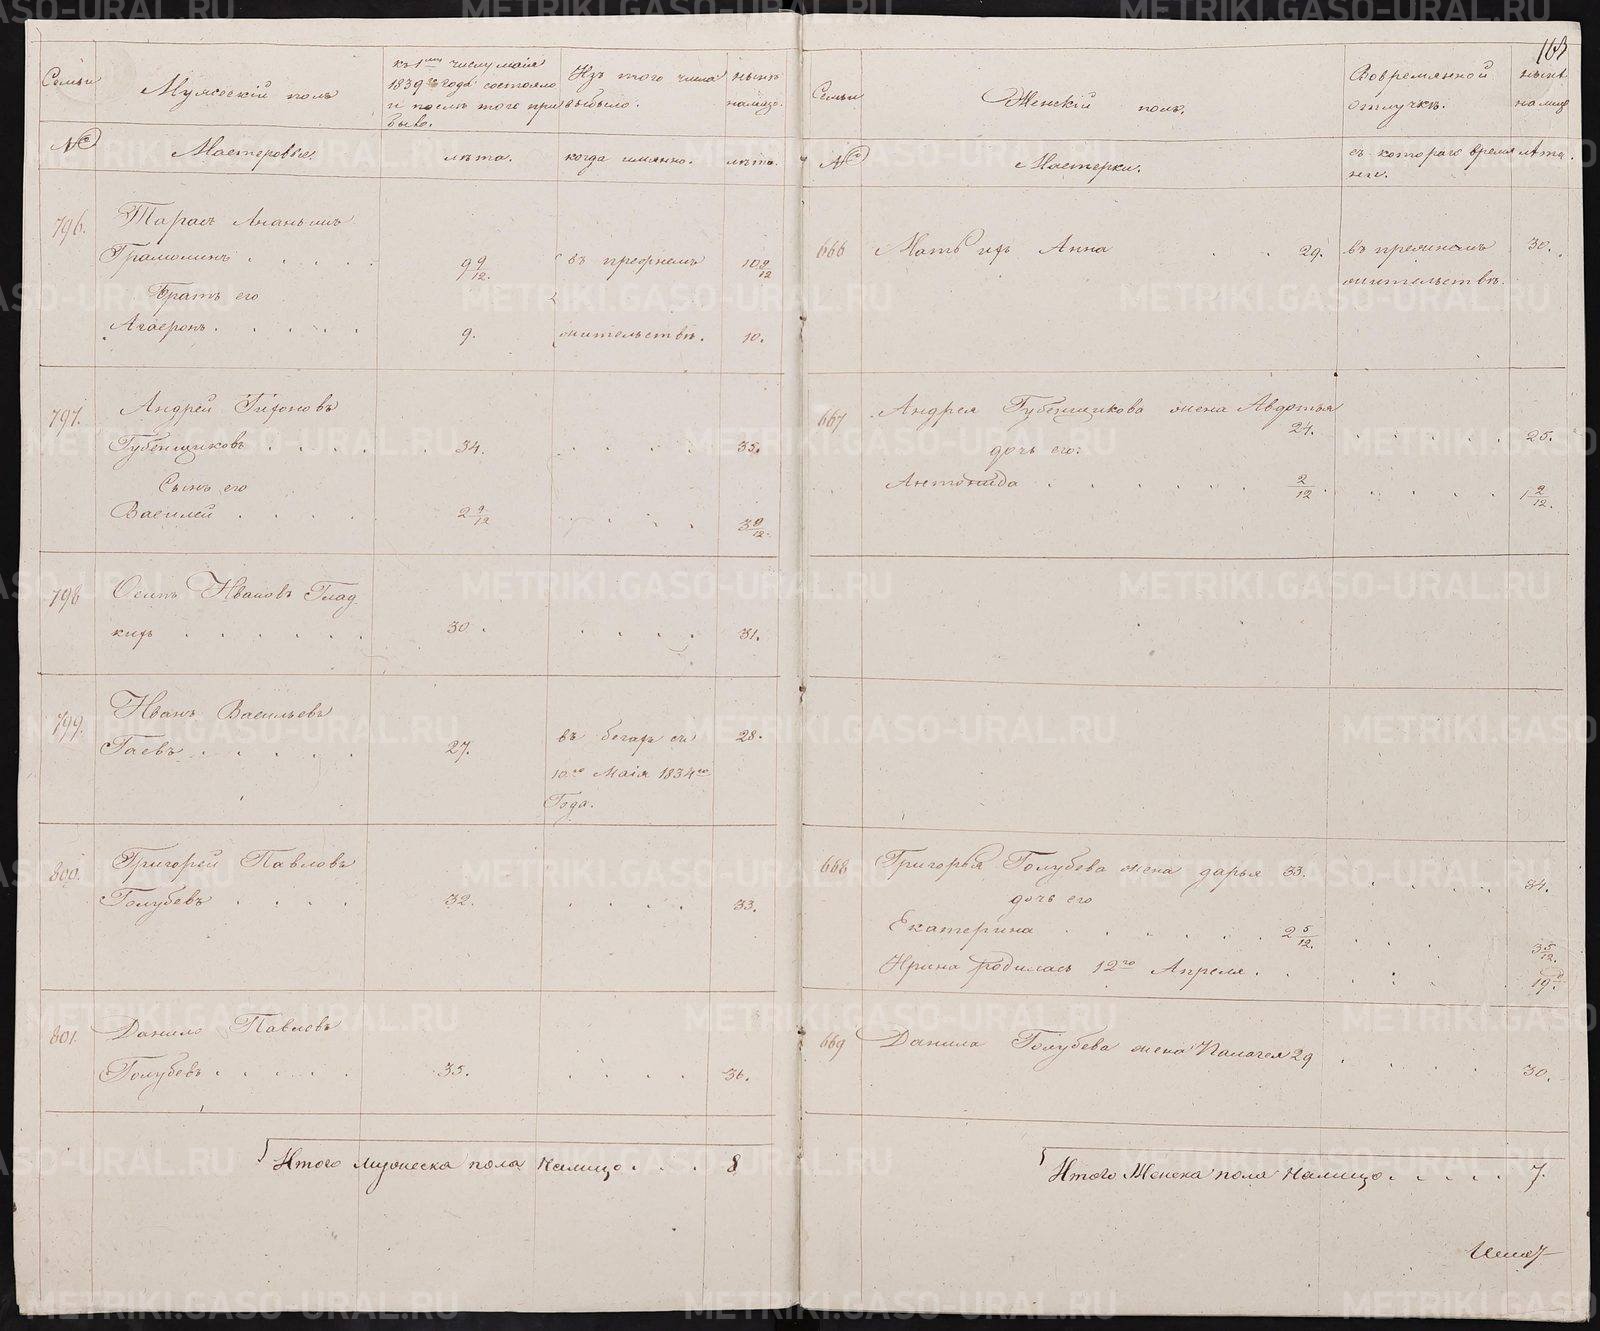 163
Семьи
Мужескiй полъ
къ 1му числу маiя
1839го года состояло
и послѣ того при
было.
Изъ того числа
выбыло.
нынѣ
налицо.
№
Мастеровые.
лѣта.
когда имянно.
лѣта.
796.
Тарасъ Ананьинъ
9 9/12.
въ прежнемъ
10 9/12
Братъ его
9.
жительствѣ.
10.
797.
Андрей
Губенщиковъ
34.
35.
Сынъ его
Василей
2 9/12
3 9/12.
798
Осипъ Ивановъ Глад
кихъ
30.
31.
799.
Иванъ Васильевъ
Гаевъ
27.
въ бегахъ съ
28.
10го Маiя 1834го
Года.
800.
Григорей Павловъ
Голубевъ
32.
33.
801.
Данило Павловъ
Голубевъ
35.
36.
Итого мужеска пола налицо
8
Семьи
Женскiй полъ.
Вовремянной
отлучкѣ.
нынѣ
налицо
№
Мастерки.
съ котораго время
нѣи.
лѣта.
666
Мать ихъ Анна
29.
въ прежнемъ
30.
жительствѣ.
667
Андрея Губенщикова жена Авдотья
24.
25.
дочь его:
Антонида
2/12.
1 2/12.
668
Григорья Голубева жена дарья 33.
34.
дочь его
Екатерина
2 5/12.
3 5/12.
Ирина родилась 12го Апреля.
19.
669
Данила Голубева жена Палагея 29
30.
Итого Женска пола налицо
7.